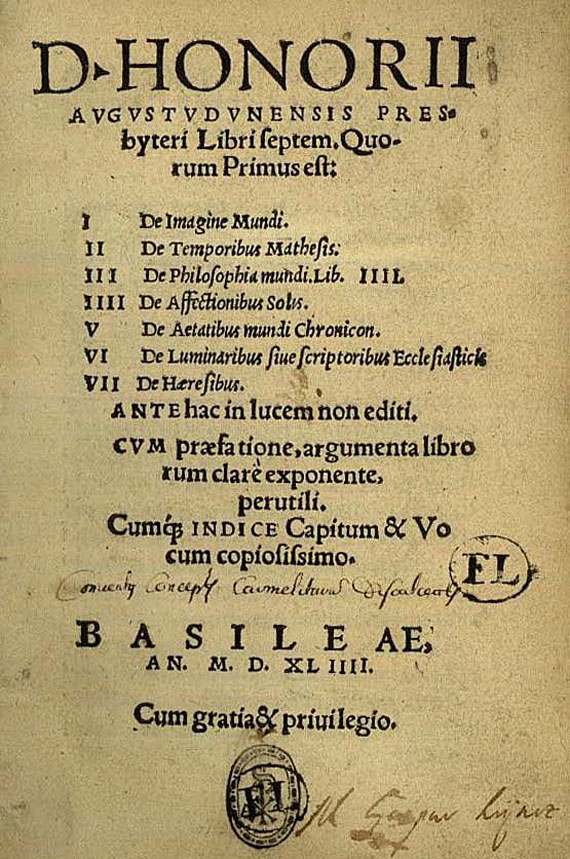 D▸HONORII
AVGVSTVDVNENSIS PRES-
byteri Libri ſeptem, Quo-
rum Primus eſt:
I De Imagine Mundi.
II De Temporibus Matheſis:
III De Philoſophia mundi. Lib. IIII.
IIII De Affectionibus Solis.
V De Aetatibus mundi Chronicon.
VI De Luminaribus ſiue ſcriptoribus Eccleſiaſticis
VII De Hæreſibus.
ANTE hac in lucem non editi.
CVM præfatione, argumenta libro
rum clarè exponente,
perutili.
Cumq́ꝫ INDICE Capitum & Vo
cum copioſiſsimo.
FL
Carmelitarum Discalceator
BASILEAE,
AN. M. D. XLIIII.
Cum gratia & priuilegio.
FL
Gaspar